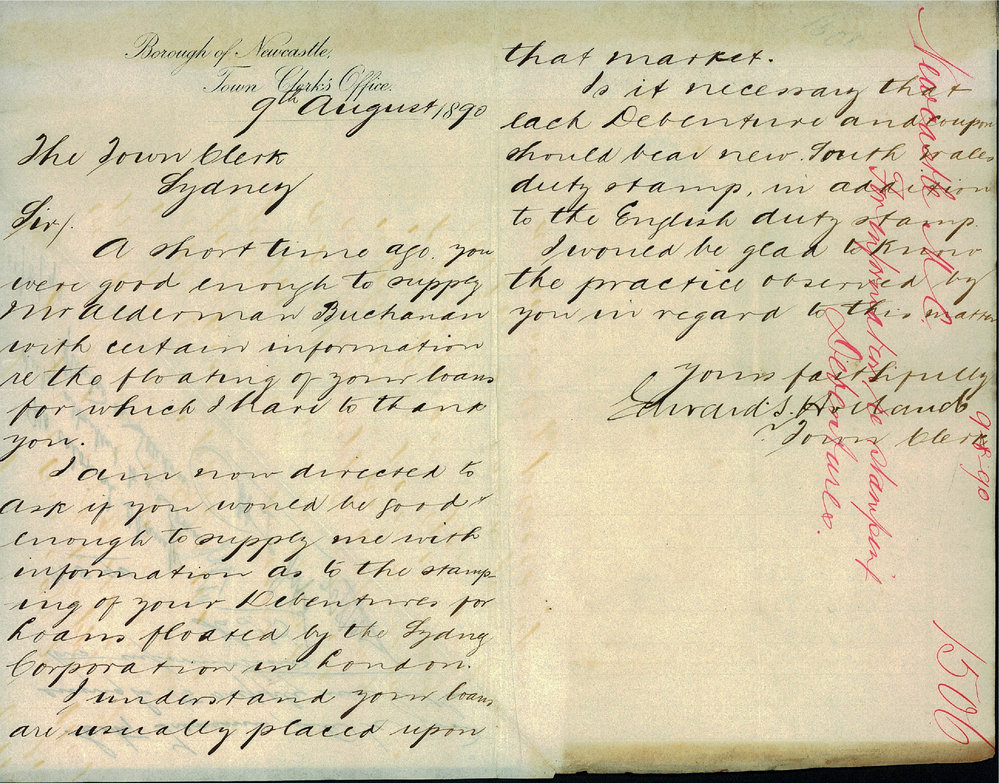 Borough of Newcastle,
Town Clerk's Office.
9th August 1890
The Town Clerk
Sydney
Sir/.
A short time ago you
were good enough to supply
Mr Alderman Buchanan
with certain information
re the floating of your loans
for which I have to thank
you.
I am now directed to
ask if you would be good
enough to supply me with
information as to the stamp-
ing of your Debentures for
Loans floated by the Sydney
Corporation in London.
I understand your loans
are usually placed upon
that market.
Is it necessary that
each Debenture and coupon
should bear new South Wales
duty stamp, in addition
to the English duty stamp.
I would be glad to know
the practice observed by
you in regard to this matter
Yours faithfully
Edward S. Holland
Town Clerk
Newcastle M. C.
For information re stamping
Debentures.
9-8-90
1506